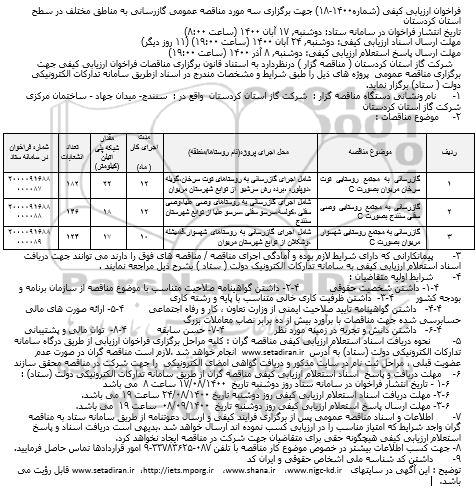 فراخوان ارزیابی کیفی (شماره۱۴۰۰-۱۸) جهت برگزاری سه مورد مناقصه عمومی گازرسانی به مناطق مختلف در سطح
استان کردستان
تاریخ انتشار فراخوان در سامانه ستاد: دوشنبه, ۱۷ آبان ۱۴۰۰ (ساعت ۸:۰۰)
مهلت ارسال اسناد ارزیابی کیفی: دوشنبه, ۲۴ آبان ۱۴۰۰ (ساعت ۱۹:۰۰) (۱۱ روز دیگر)
مهلت ارسال پاسخ استعلام ارزیابی کیفی: دوشنبه, ۸ آذر ۱۴۰۰ (ساعت ۱۹:۰۰)
شرکت گاز استان کردستان ( مناقصه گزار ) درنظردارد به استناد قانون برگزاری مناقصات فراخوان ارزیابی کیفی جهت
برگزاری مناقصه عمومی پروژه های ذیل را طبق شرایط و مشخصات مندرج در اسناد ازطریق سامانه تدارکات الکترونیکی
دولت ( ستاد ) برگزار نماید.
۱- نام ونشانی دستگاه مناقصه گزار : شرکت گاز استان کردستان واقع در : سنندج- میدان جهاد - ساختمان مرکزی
شرکت گاز استان کردستان
۲- موضوع مناقصات :
ردیف موضوع مناقصه محل اجرای پروژه(نام روستاها/منطقه) مدت اجرا ( ماه) مقدار شبکه پلی اتیلن (کیلومتر) تعداد انشعابات شماره فراخوان در سامانه ستاد
۱ گازرسانی به مجتمع روستایی توت سرخان مریوان بصورت C شامل اجرای گازرسانی به روستاهای توت سرخان، از توابع شهرستان مریوان ۱۲ ۲۲ ۱۸۲ ۲۰۰۰۰۹۱۶۸۸۰۰۰۰۸۷
۲ گازرسانی به مجتمع روستایی وصی سفلی سنندج بصورت C شامل اجرای گازرسانی به روستاهای وصی علیا،وصی سفلی، از توابع شهرستان سنندج ۱۲ ۱۸ ۱۴۶ ۲۰۰۰۰۹۱۶۸۸۰۰۰۰۸۸
۳ گازرسانی به مجتمع روستایی شهسوار مریوان بصورت C شامل اجرای گازرسانی به روستاهای شهسوار، از توابع شهرستان مریوان ۱۰ ۱۷ ۱۲۴ ۲۰۰۰۰۹۱۶۸۸۰۰۰۰۸۹
۳- پیمانکارانی که دارای شرایط لازم بوده و آمادگی اجرای مناقصه / مناقصه های فوق را دارند می توانند جهت دریافت
اسناد استعلام ارزیابی کیفی به سامانه تدارکات الکترونیک دولت ( ستاد ) بشرح ذیل مراجعه نمایند .
۴- شرایط اولیه متقاضیان :
۱-۴- داشتن شخصیت حقوقی ۲-۴- داشتن گواهینامه صلاحیت متناسب با موضوع مناقصه از سازمان برنامه و
بودجه کشور ۳-۴- داشتن ظرفیت کاری خالی متناسب با پایه و رشته کاری
۴-۴- داشتن گواهینامه تایید صلاحیت ایمنی از وزارت تعاون ، کار و رفاه اجتماعی ۵-۴- ارائه صورت های مالی
حسابرسی شده جهت مناقصات با برآورد بیش از ده برابر نصاب معاملات بزرگ
۶-۴- داشتن دانش و تجربه در زمینه مورد نظر ۷-۴- حسن سابقه ۸-۴- توان مالی و پشتیبانی
۵- نحوه دریافت اسناد استعلام ارزیابی کیفی مناقصه گران : کلیه مراحل برگزاری فراخوان ارزیابی از طریق درگاه سامانه
تدارکات الکترونیکی دولت (ستاد) به آدرس www.setadiran.ir انجام خواهد شد .لازم است مناقصه گران در صورت عدم
عضویت قبلی ، مراحل ثبت نام در سایت مذکور و دریافت گواهی امضای الکترونیکی را جهت شرکت در مناقصه محقق سازند
۶- مهلت دریافت و پاسخ اسناد استعلام ارزیابی کیفی مناقصه گران از طریق سامانه تدارکات الکترونیکی دولت (ستاد) :
۱-۶ - تاریخ انتشار فراخوان در سامانه ستاد روز دوشنبه تاریخ ۱۷/۰۸/۱۴۰۰ ساعت ۸ می باشد
۲-۶- مهلت دریافت اسناد استعلام ارزیابی کیفی روز دوشنبه تاریخ ۲۴/۰۸/۱۴۰۰ ساعت ۱۹ می باشد.
۳-۶- مهلت ارسال پاسخ استعلام ارزیابی کیفی روز دوشنبه تاریخ ۰۸/۰۹/۱۴۰۰ ساعت ۱۹ می باشد.
۷- اطلاعات و اسناد مناقصه عمومی پس از برگزاری فرآیند کیفی و ارسال دعوتنامه از طریق سامانه ستاد به مناقصه
گران واجد شرایط که امتیاز مناسب را در ارزیابی کسب نموده اند ارسال خواهد شد .بدیهی است دریافت اسناد و پاسخ
استعلام ارزیابی کیفی هیچگونه حقی برای متقاضیان جهت شرکت در مناقصه ایجاد نخواهد کرد.
۸- جهت کسب اطلاعات بیشتر در خصوص موضوع کار مناقصه با تلفن ۰۸۷-۳۳۷۸۳۶۲۵-۹ امور قراردادها تماس حاصل فرمایید.
۹- داشتن کد شناسه ملی اشخاص حقوقی و ایران کد
توضیح : این آگهی در سایتهای www.nigc-kd.ir ، www.shana.ir ، http://iets.mporg.ir ، www.setadiran.ir قابل رؤیت می
باشد.